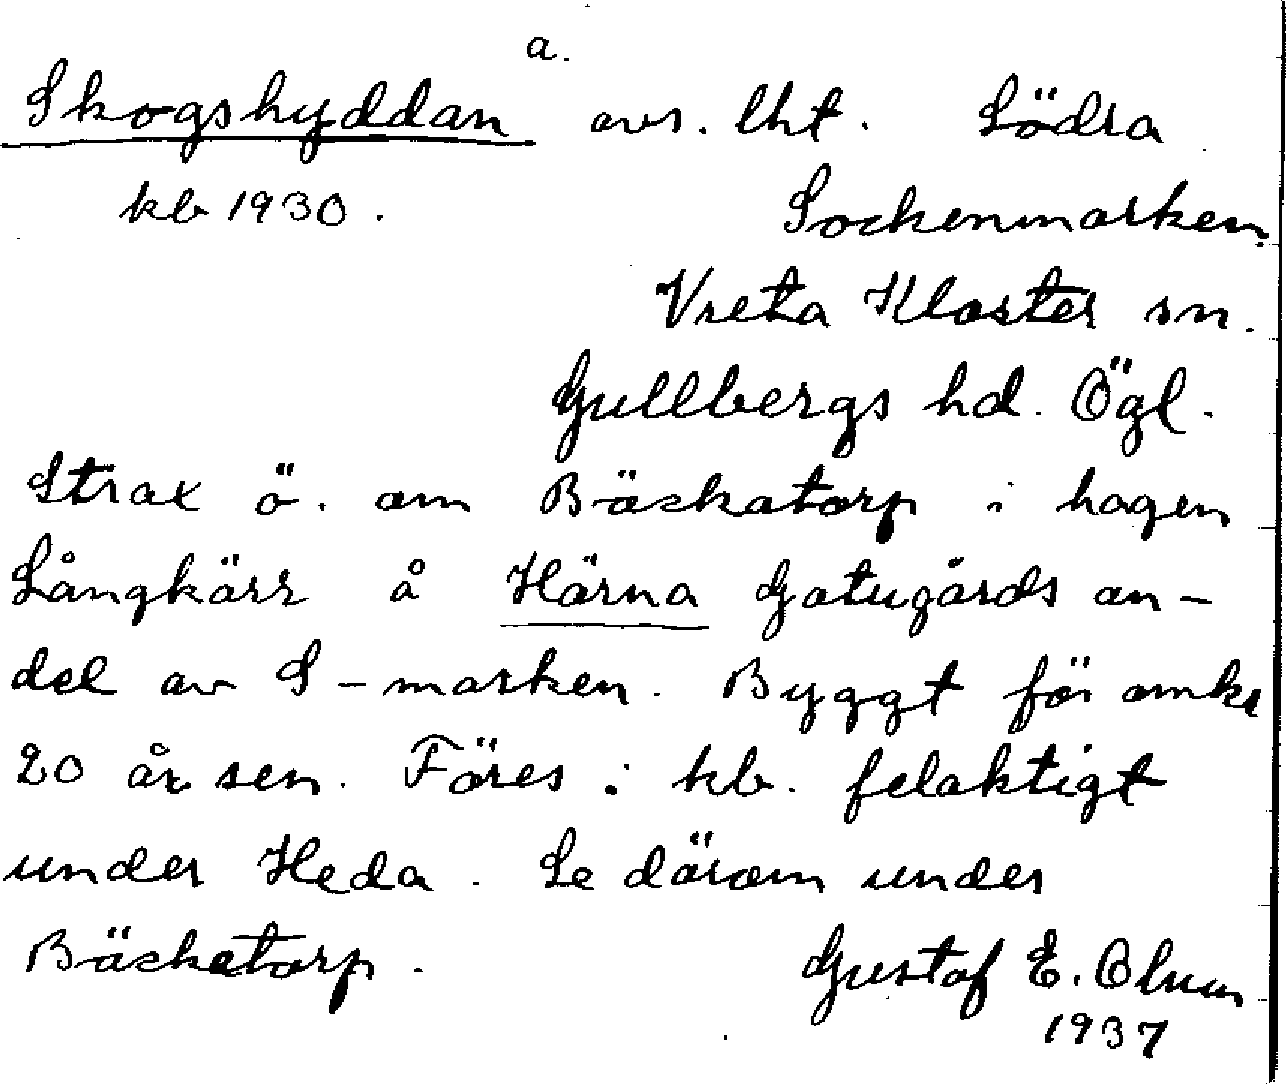 a.
Skogshyddan avs. lht. Södra
kb 1930. Sockenmarken.
Vreta Kloster sn.
Gullbergs hd. Ögl.
Strax ö. om Bäckatorp i hagen
Långkärr å Härna Gatugårds an-
del av S-marken. Byggt för omkr
20 år sen. Föres i kb. felaktigt
under Heda. Se därom under
Bäckatorp. Gustaf E. Olson
1937